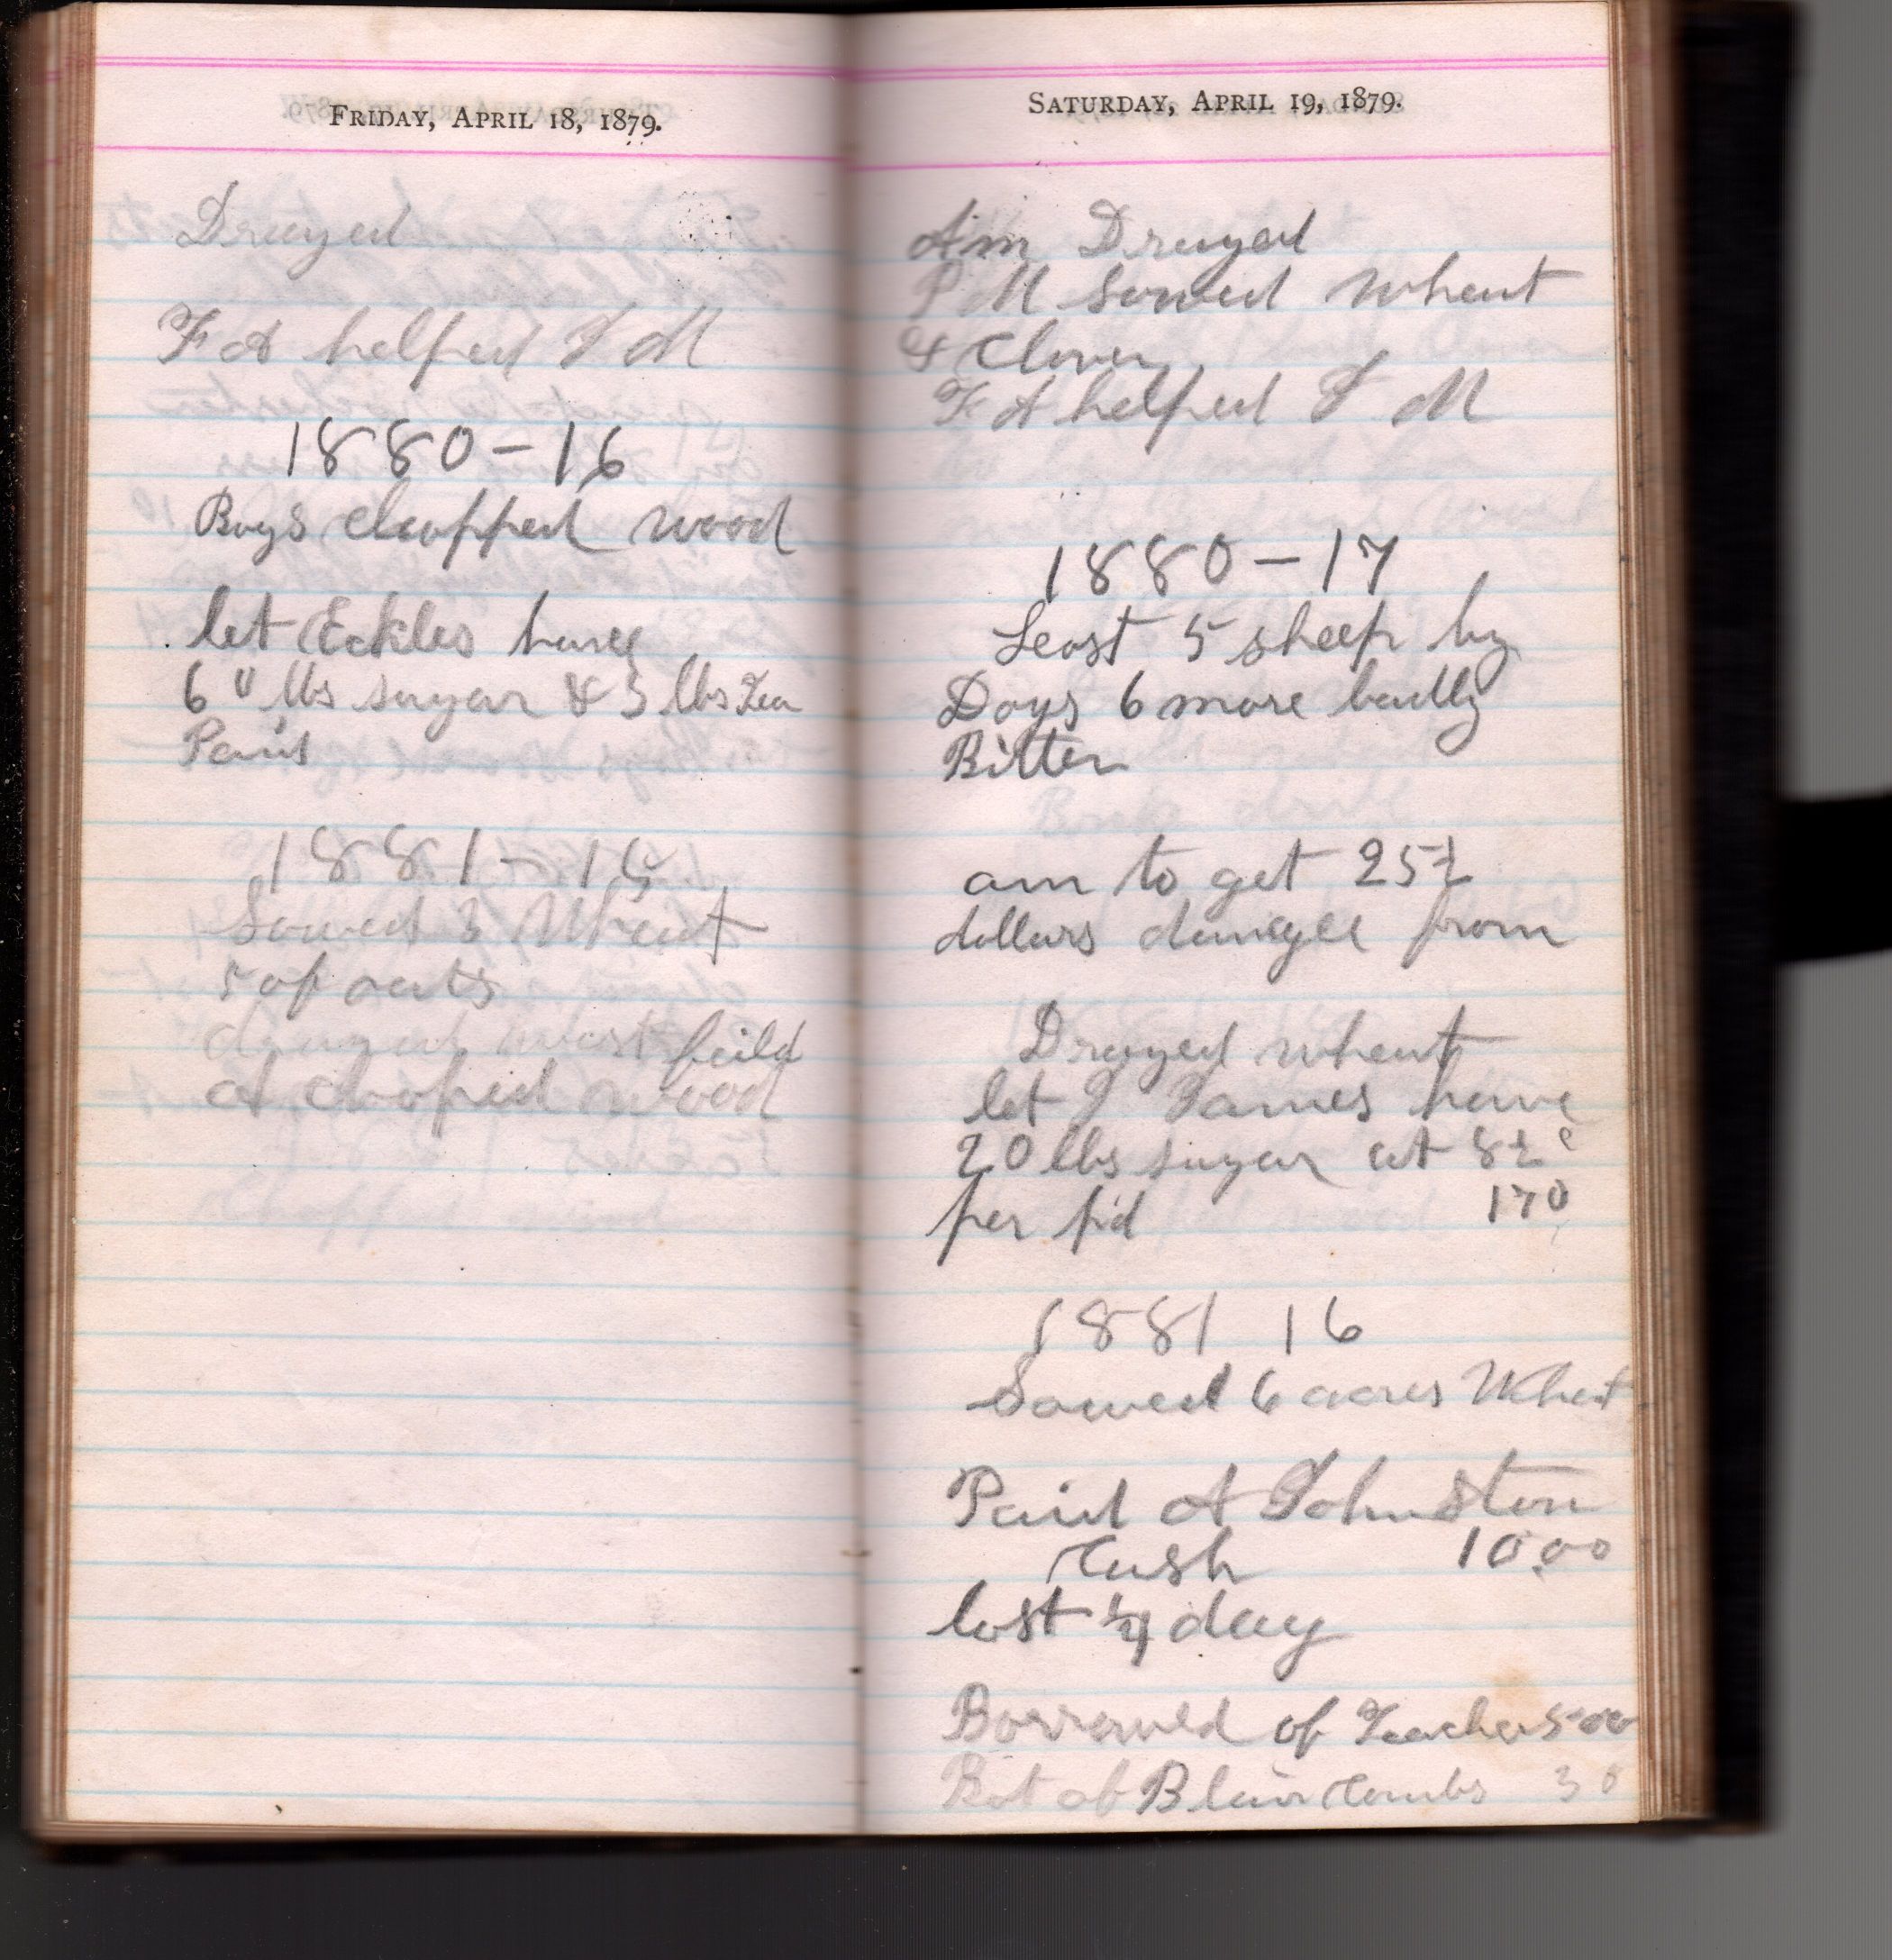 FRIDAY, APRIL 18, 1879.
Draged
F A helped J M
1880-16
Boys chopped wood
let Eckles have
6 lbs sugar & 3 lbs Tea
Paid
1881-15
Sowed 3 Wheat
5 of oats
draged west feild
A choped wood
SATURDAY, APRIL 19, 1879.
Am Draged
P M Sowed Wheat
& Clover
F A helped J M
1880-17
Least 5 sheep by
Dogs 6 more badly
Bitten
am to get 25½
dollars damage from
Draged wheat
let J James have
20 lbs sugar at 8½ c
per p'd 170
1881 16
Sowed 6 acres Wheat
Paid A Johnston
Cash 10.00
lost ¼ day
Borrowed of Teacher 5 00
Bot of Blair Combs 30